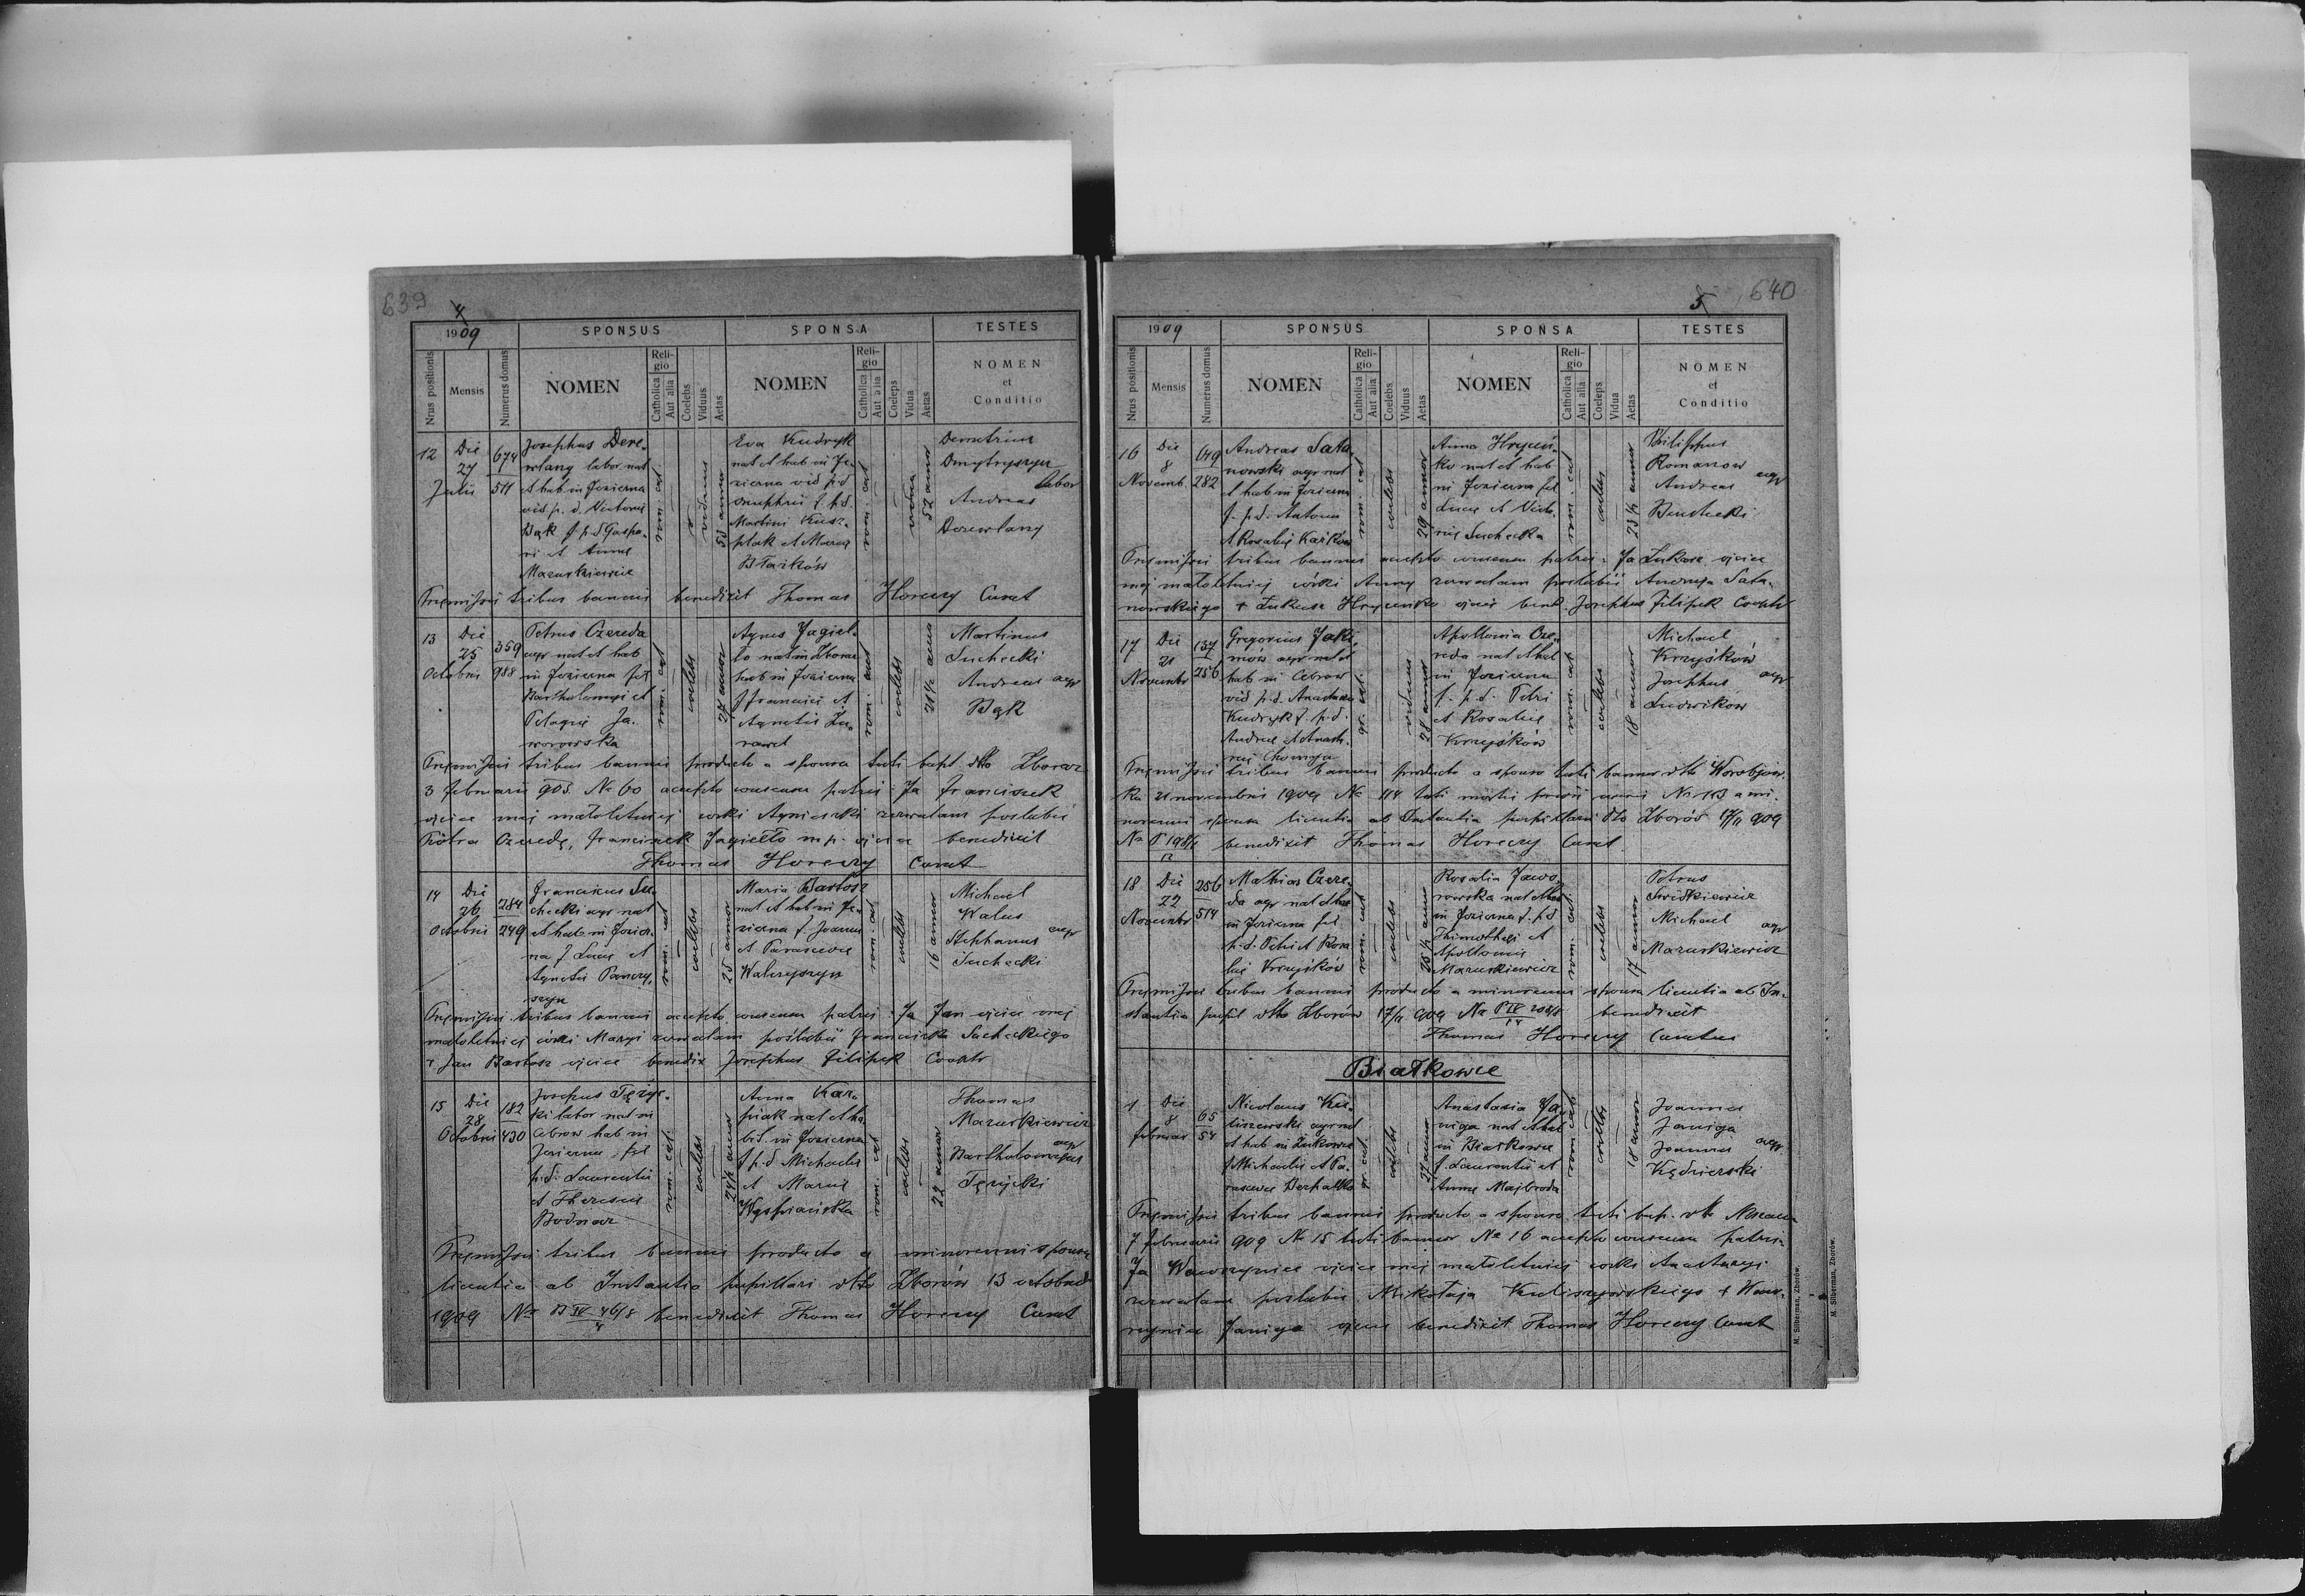 639
4
1909
SPONSUS
SPONSA
TESTES
Nrus positionis
Mensis
Numerus domus
NOMEN
Religio
Catholica
Aut alia
Coelebs
Viduus
Aetas
NOMEN
Religio
Catholica
Aut alia
Coeleps
Vidua
Aetas
NOMEN
et
Conditio
12
Die
27
Julii
674
511
Josephus Dere-
wlany labor nat
et hab in Jezierna
vid p. d. Victoriae
Bąk f p d Gaspa-
ri et Annae
Mazurkiewicz
rom. cat
viduus
53 annor
Eva Kudryk
nat et hab in Je-
zierna vid p d
Onuphrii f. p d.
Martini Kusz-
plak et Mariae
Błaików
rom. cat
vidua
52 annor
Demetrius
Dmytryszyn
labor
Andreas
Derewlany
Premissis tribus bannis benedixit Thomas Horeczy Curat
13
Die
25
Octobris
359
988
Petrus Czereda
agr nat et hab
in Jezierna fil
Bartholomaei et
Pelagiae Ja-
worowska
rom. cat
coelebs
24 annor
Agnes Jagieł-
ło nat in Zboraz
hab in Jezierna
f Francisci et
Agnetis Żu-
rawel
rom. cat
coelebs
21½ anno
Martinus
Suchecki
Andreas agr
Bąk
Premissis tribus bannis producto a sponsa testi bapt dto Zboraz
3 februarii 905. No 60 accepto consensu patris: Ja Franciszek
ojciec mej małoletniej córki Agnieszki zezwalam poślubić
Piotra Czeredę, Franciszek Jagiełło mp. ojciec benedixit
Thomas Horeczy Curat
14
Die
26
Octobris
284
249
Franciscus Su-
checki agr nat
et hab in Jezier-
na f Lucae et
Agnetis Panczy-
szyn
rom. cat
coelebs
25 annor
Maria Bartosz
nat et hab in Je-
zierna f. Joannis
et Parasceviae
Walczyszyn
rom. cat
coelebs
16 annor
Michael
Walus
Stephanus agr
Suchecki
Premissis tribus bannis accepto consensu patris: Ja Jan ojciec mej
małoletniej córki Maryi zezwalam poślubić Franciszka Sucheckiego
+ Jan Bartosz ojciec benedix Josephus Filipek Cooptr
15
Die
28
Octobris
182
430
Josephus Tęzyc-
ki labor nat in
Cebrow hab in
Jezierna, fil
p. d. Laurentii
et Theresiae
Bodnar
rom. cat.
coelebs
24½ annor
Anna Kar-
piak nat et ha-
bit. in Jezierna
f p. d Michaelis
et Mariae
Wyspiańska
rom. cat
coelebs
22 annor
Thomas
Mazurkiewicz
agr
Bartholomaeus
Tęzycki
Premissis tribus bannis producto a minorenni sponsa
licentia ab Instantia pupillari dto Zborów 13 octobris
1909 No P IV 46/8 benedixit Thomas Horeczy Curat
4
640
5
1909
SPONSUS
SPONSA
TESTES
Nrus positionis
Mensis
Numerus domus
NOMEN
Religio
Catholica
Aut alia
Coelebs
Viduus
Aetas
NOMEN
Religio
Catholica
Aut alia
Coeleps
Vidua
Aetas
NOMEN
et
Conditio
16
Die
8
Novemb.
649
282
Andreas Sata-
nowski agr nat
et hab in Jezierna
f. p. d. Antonii
et Rosaliae Karków
rom. cat
coelebs
29 annor
Anna Hryceń-
ko nat et hab
in Jezierna fil
Lucae et Victo-
riae Suchecka
rom. cat
coelebs
23½ annor
Philippus
Romanow
agr
Andreas
Bendecki
Premissis tribus bannis accepto consensu patris: Ja Łukasz ojciec
mej małoletniej córki Anny zezwalam poślubić Andrzeja Sata-
nowskiego + Łukasz Hryceńko ojciec bend. Josephus Filipek Cooptr
17
Die
21
Novembr
137
256
Gregorius Jaki-
mów agr nat et
hab in Cebrow
vid p. d. Anastasiae
Kudryk f. p. d.
Andreae et Anasta-
siae Chomyja
gr. cat.
viduus
28 annor
Apollonia Cze-
reda nat et hab
in Jezierna
f. p. d. Petri
et Rosaliae
Krzyśków
rom. cat
coelebs
18 annor
Michael
Krzyśków
agr
Josephus
Ludwikow
Premissis tribus bannis producto a sponso testi bannor dto Worobjow-
ka 21 novembris 1909 No 114 testi mortis No 103 a mi-
norenni sponsa licentia ab Instantia pupillari dto Zborów 17/11 909
No P 198/4 benedixit Thomas Horeczy Curat
12
18
Die
22
Novembr
256
514
Mathias Czere-
da agr nat et hab
in Jezierna fil
p. d. Petri et Rosa-
liae Krzyśków
rom. cat
coelebs
25½ annor
Rosalia Jawo-
rowska nat et hab
in Jezierna f. p d
Thimothei et
Apolloniae
Mazurkiewicz
rom. cat
coelebs
17 annor
Petrus
Michael
agr
Mazurkiewicz
Premissis tribus bannis producto a minorenni sponsa licentia ab In-
stantia pupil dto Zborów 17/11 909 No P IV benedixit
14
Thomas Horeczy Curatus
Białkowce
1
Die
8
februar
65
54
Nicolaus Ku-
liszewski agr nat
et hab in Żukowce
f Michaelis et Pa-
rasceviae Berhatko
gr. cat.
coelebs
27 annor
Anastasia Ja-
niga nat et hab
in Białkowce
f. Laurentii et
Annae Majbroda
rom cat
coelebs
18 annor
Joannes
Janiga
Joannes agr
Kędzierski
Premissis tribus bannis producto a sponso testi bap. dto
7 februarii 909 No 15 testi bannor No 16 accepto consensu patris:
Ja Wawrzyniec ojciec mej małoletniej córki Anastazyi
zezwalam poślubić Mikołaja Kuliszewskiego + Waw-
rzyniec Janiga ojciec benedixit Thomas Horeczy Curat
M. Silberman, Zborów.
M. Silberman, Zborów.